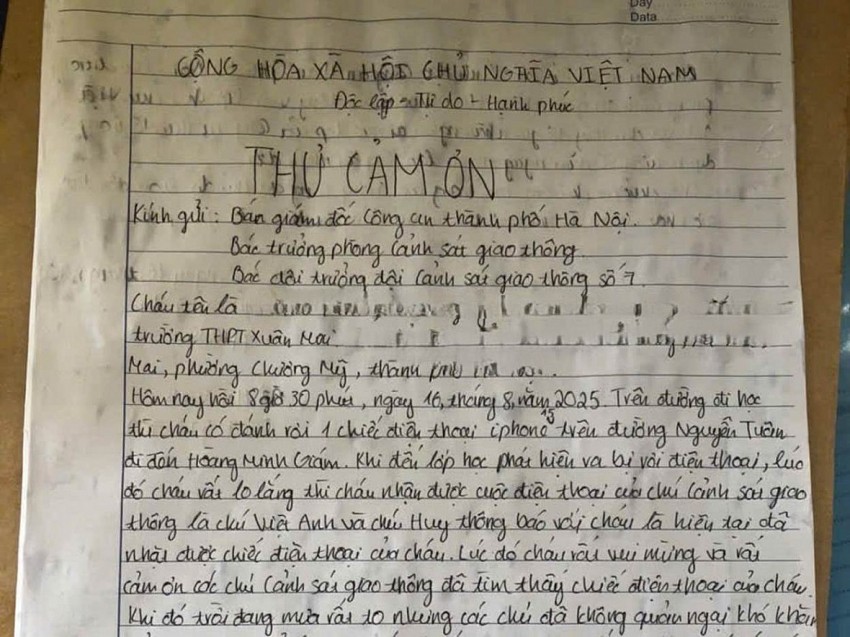 Day
Data
CỘNG HÒA XÃ HỘI CHỦ NGHĨA VIỆT NAM
Độc lập - Tự do - Hạnh phúc
THƯ CẢM ƠN
Kính gửi: Ban giám đốc Công an thành phố Hà Nội.
Bác trưởng phòng Cảnh sát giao thông.
Bác đội trưởng đội Cảnh sát giao thông số 7.
Cháu tên là
trường THPT Xuân Mai.
Mai, phường Chương Mỹ, thành
Hôm nay hồi 8 giờ 30 phút, ngày 16, tháng 8, năm 2025. Trên đường đi học
thì cháu có đánh rơi 1 chiếc điện thoại iphone 15 trên đường Nguyễn Tuân
đi đến Hoàng Minh Giám. Khi đến lớp học phát hiện ra bị rơi điện thoại, lúc
đó cháu rất lo lắng thì cháu nhận được cuộc điện thoại của chú Cảnh sát giao
thông là chú Việt Anh và chú Huy thông báo với cháu là hiện tại đã
nhặt được chiếc điện thoại của cháu. Lúc đó cháu rất vui mừng và rất
cảm ơn các chú Cảnh sát giao thông đã tìm thấy chiếc điện thoại của cháu.
Khi đó trời đang mưa rất to nhưng các chú đã không quản ngại khó khăn